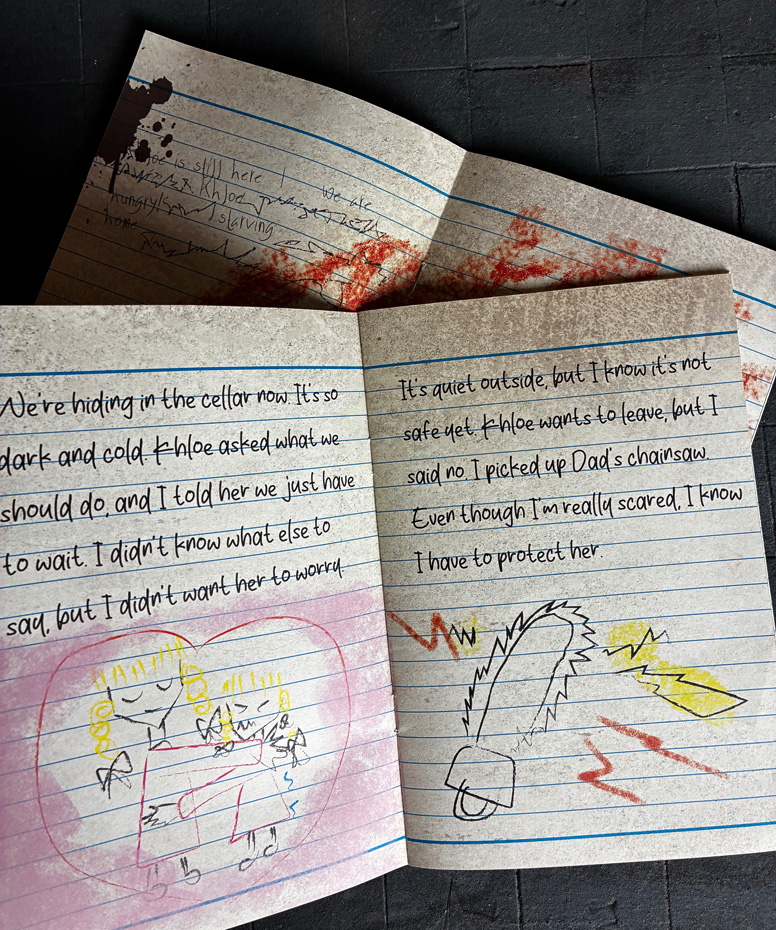 is still here
Khloe
We are
hungry
starving
home
We're hiding in the cellar now. It's so
dark and cold. Khloe asked what we
should do, and I told her we just have
to wait. I didn't know what else to
say, but I didn't want her to worry.
It's quiet outside, but I know it's not
safe yet. Khloe wants to leave, but I
said no. I picked up Dad's chainsaw.
Even though I'm really scared, I know
I have to protect her.